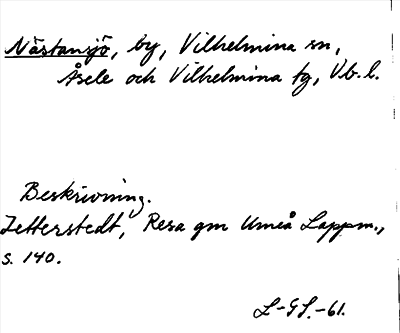 Nästansjö, by, Vilhelmina sn,
Åsele och Vilhelmina tg, Vb. l.
Beskrivning.
Zetterstedt, Resa gm Umeå Lappm.,
s. 140.
L-GS.-61.